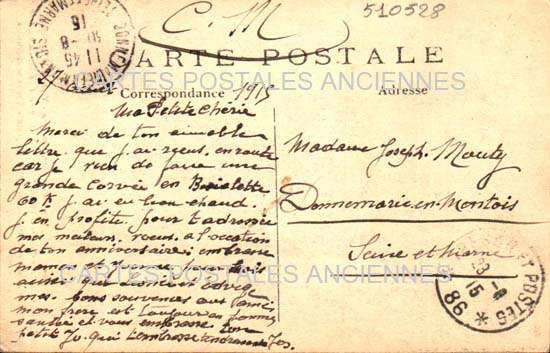 C. M
510528
CARTE POSTALE
CARTES POSTALES ANCIENNES
Correspondance 1915
Adresse
Ma Petite Chérie
Merci de ton aimable
lettre que j'ai reçus en route
car je vien de faire une
grande corvée en
60 K j'ai eu bien chaud.
j'en profite pour t'adresser
mes meilleurs vœux a l'occation
de ton anniversaire; embrasse
aussi que
mes bons souvenirs aux amis
mon frere est toujour en bonnes
santée et vous embrasse ton
petit Jo. qui t'embrasse tendrement Jos.
Madame Joseph Mouty
Donnemarie-en-Montois
Seine et Marne
CARTES POSTALES ANCIENNES
11 45
POSTES
15
98